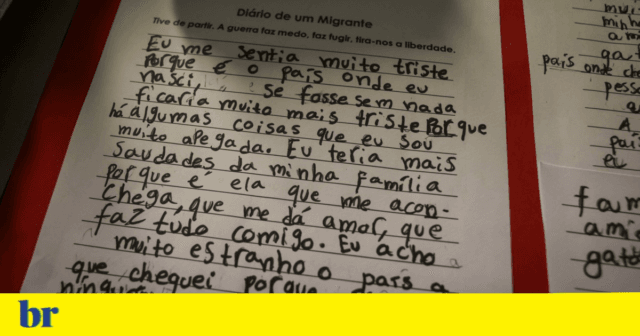 Diário de um Migrante
Tive de partir. A guerra faz medo, faz fugir, tira-nos a liberdade.
Eu me sentia muito triste
porque é o país onde eu
nasci, se fosse sem nada
ficaria muito mais triste porque
há algumas coisas que eu sou
muito apegada. Eu teria mais
saudades da minha família
porque é ela que me acon-
chega, que me dá amor, que
faz tudo comigo. Eu acho
muito estranho o país a
que cheguei porque
ningu
mui
minh
ami
gat
país onde
pesso
a
A
pai
Eu
fam
ami
gato
br